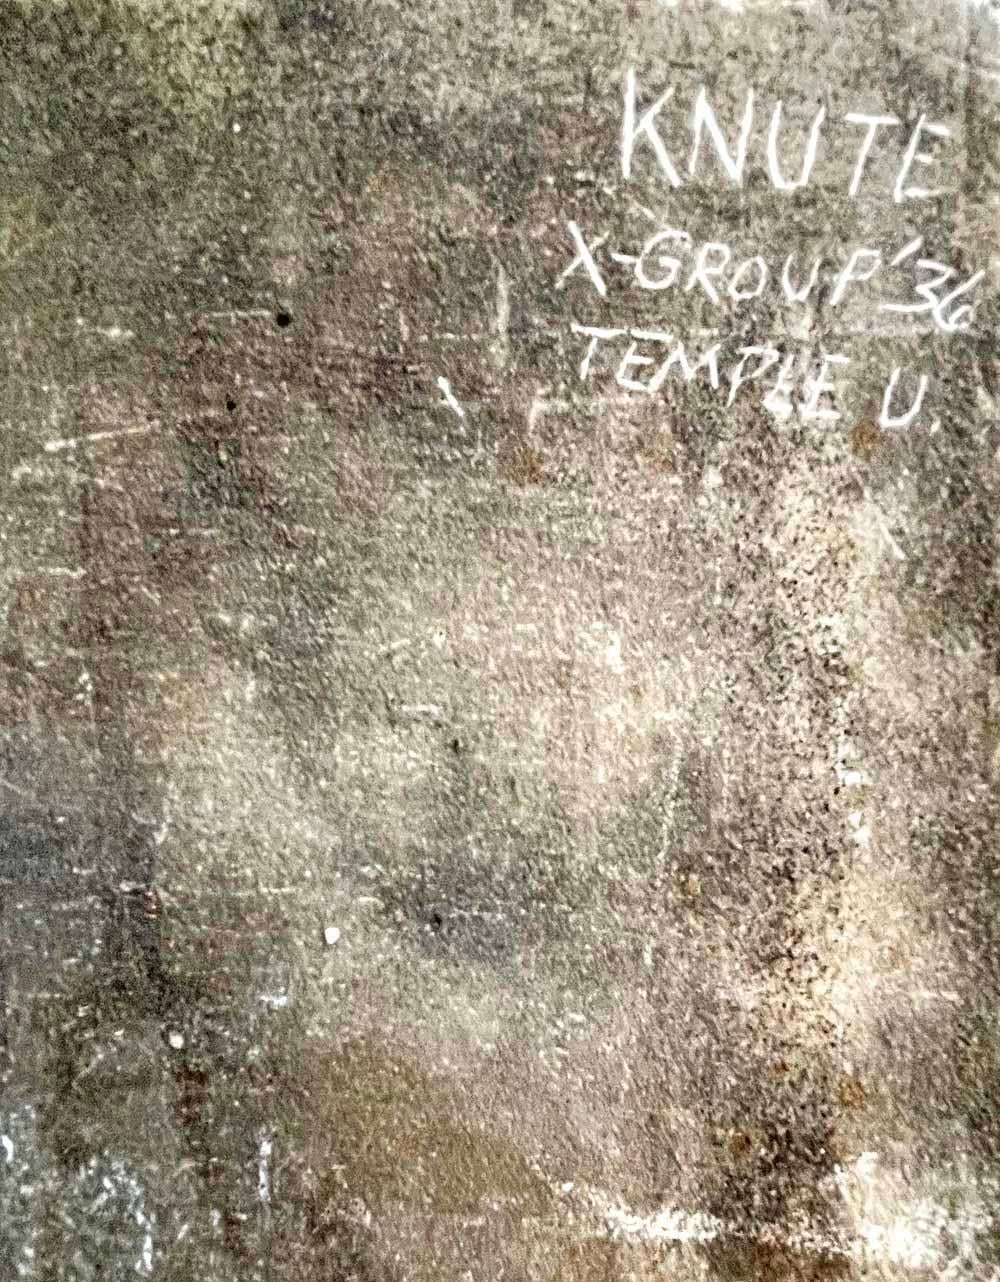 KNUTE
X-GROUP '36
TEMPLE U.